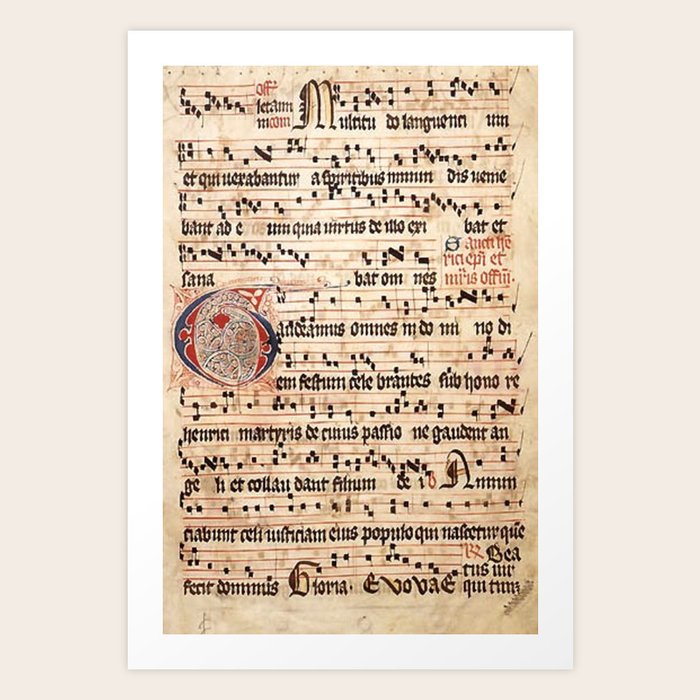 off̄
letam
m com Multitu do languenci um
et qui vexabantur a spiritibus inmun dis venie
bant ad e um quia virtus de illo exi bat et
sana bat om nes
Sancti he
rici ep̄i et
mr̄is offm̄.
Gaudeamus omnes in do mi no di
em festum cele brantes sub hono re
henrici martyris de cuius passio ne gaudent an
ge li et collau dant filium de i Annun
ciabunt celi iusticiam eius populo qui nascetur que
fecit dominus Gloria. EVOVAE Bea
tus vir
qui timz